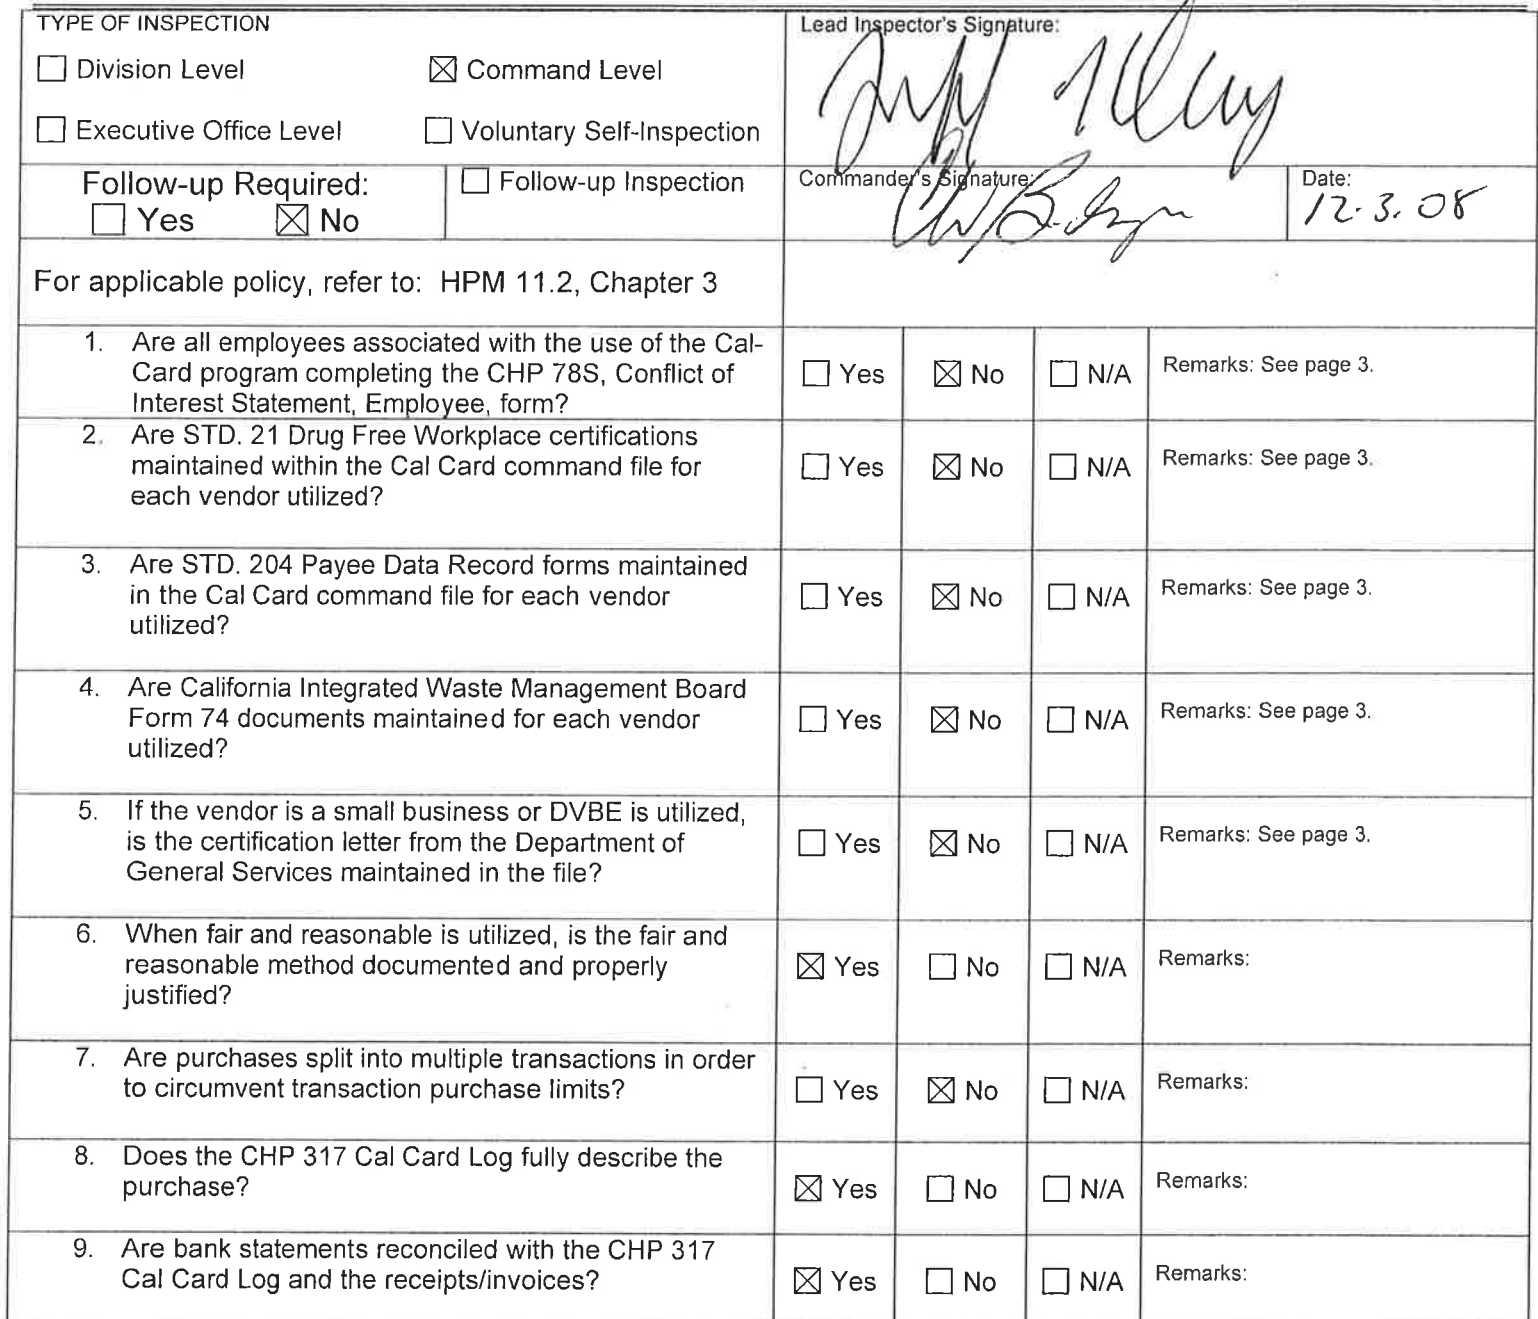 TYPE OF INSPECTION
☐ Division Level ☒ Command Level
☐ Executive Office Level ☐ Voluntary Self-Inspection
Lead Inspector's Signature:
Follow-up Required:
☐ Yes ☒ No
☐ Follow-up Inspection
Commander's Signature:
Date:
12.3.08
For applicable policy, refer to: HPM 11.2, Chapter 3
1. Are all employees associated with the use of the Cal-
Card program completing the CHP 78S, Conflict of
Interest Statement, Employee, form?
☐ Yes ☒ No ☐ N/A Remarks: See page 3.
2. Are STD. 21 Drug Free Workplace certifications
maintained within the Cal Card command file for
each vendor utilized?
☐ Yes ☒ No ☐ N/A Remarks: See page 3.
3. Are STD. 204 Payee Data Record forms maintained
in the Cal Card command file for each vendor
utilized?
☐ Yes ☒ No ☐ N/A Remarks: See page 3.
4. Are California Integrated Waste Management Board
Form 74 documents maintained for each vendor
utilized?
☐ Yes ☒ No ☐ N/A Remarks: See page 3.
5. If the vendor is a small business or DVBE is utilized,
is the certification letter from the Department of
General Services maintained in the file?
☐ Yes ☒ No ☐ N/A Remarks: See page 3.
6. When fair and reasonable is utilized, is the fair and
reasonable method documented and properly
justified?
☒ Yes ☐ No ☐ N/A Remarks:
7. Are purchases split into multiple transactions in order
to circumvent transaction purchase limits?
☐ Yes ☒ No ☐ N/A Remarks:
8. Does the CHP 317 Cal Card Log fully describe the
purchase?
☒ Yes ☐ No ☐ N/A Remarks:
9. Are bank statements reconciled with the CHP 317
Cal Card Log and the receipts/invoices?
☒ Yes ☐ No ☐ N/A Remarks: